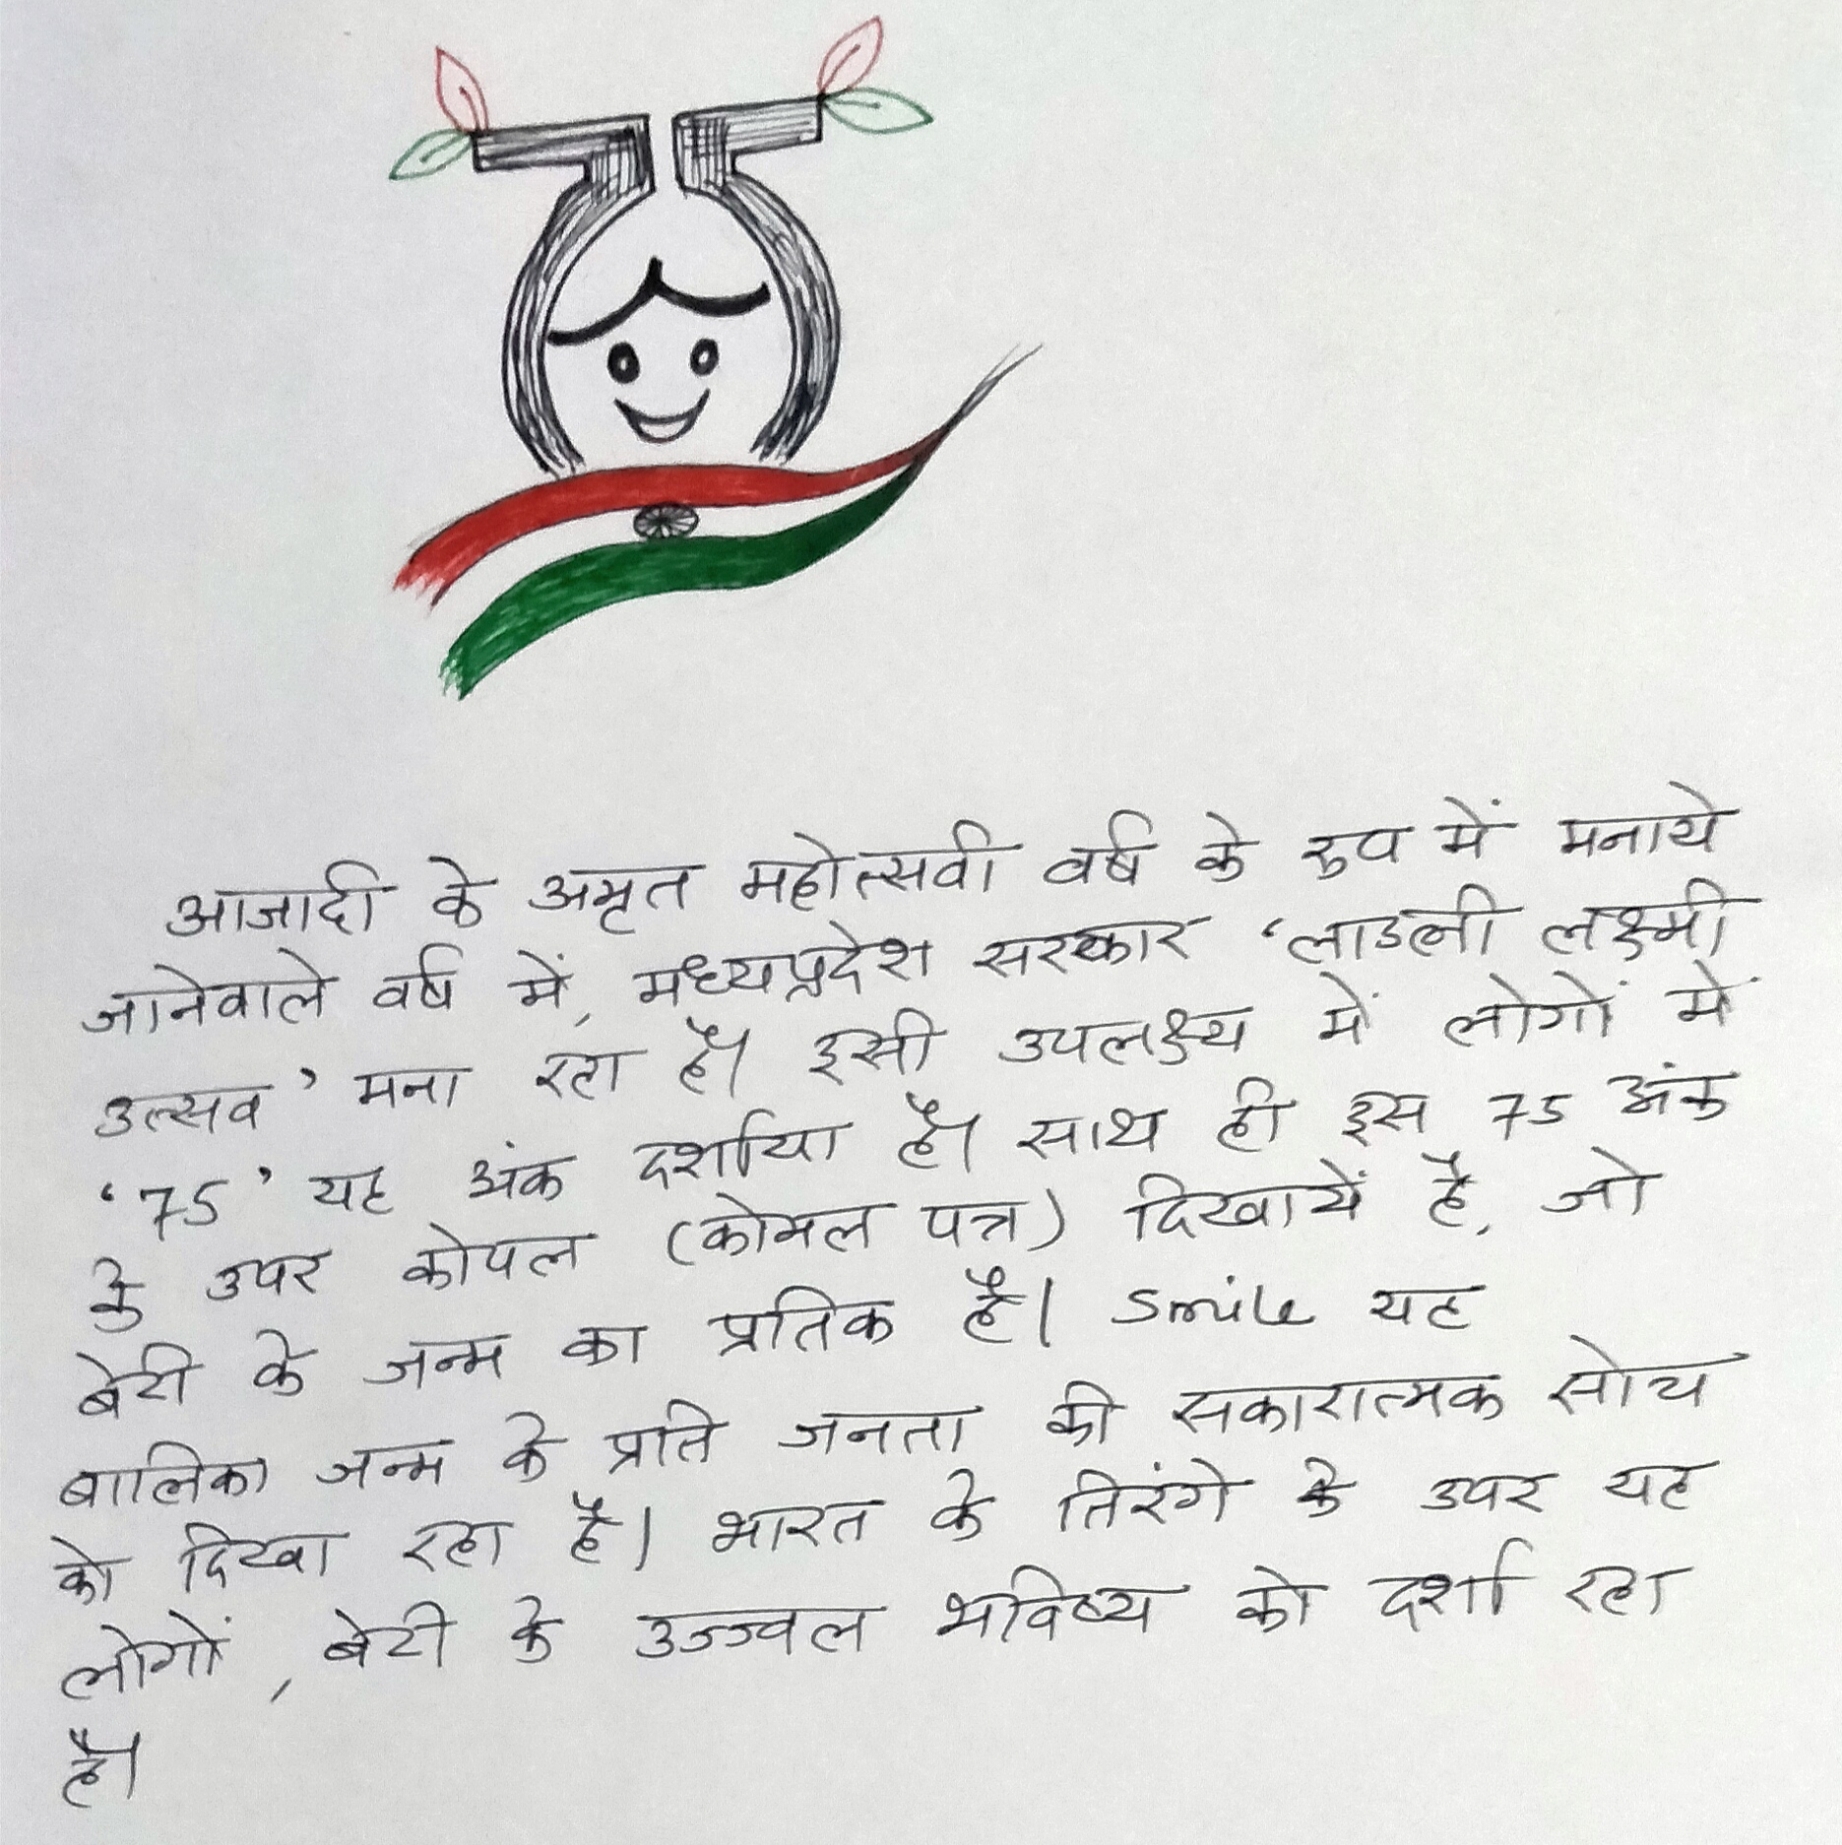 आजादी के अमृत महोत्सवी वर्ष के रुप में मनाये
जानेवाले वर्ष में, मध्यप्रदेश सरकार ‘लाडली लक्ष्मी
उत्सव’ मना रहा है। इसी उपलक्ष्य में लोगों में
‘75’ यह अंक दर्शाया है। साथ ही इस 75 अंक
के उपर कोपल (कोमल पत्र) दिखायें है, जो
बेटी के जन्म का प्रतिक है। Smile यह
बालिका जन्म के प्रति जनता की सकारात्मक सोच
को दिखा रहा है। भारत के तिरंगे के उपर यह
लोगों, बेटी के उज्ज्वल भविष्य को दर्शा रहा
है।